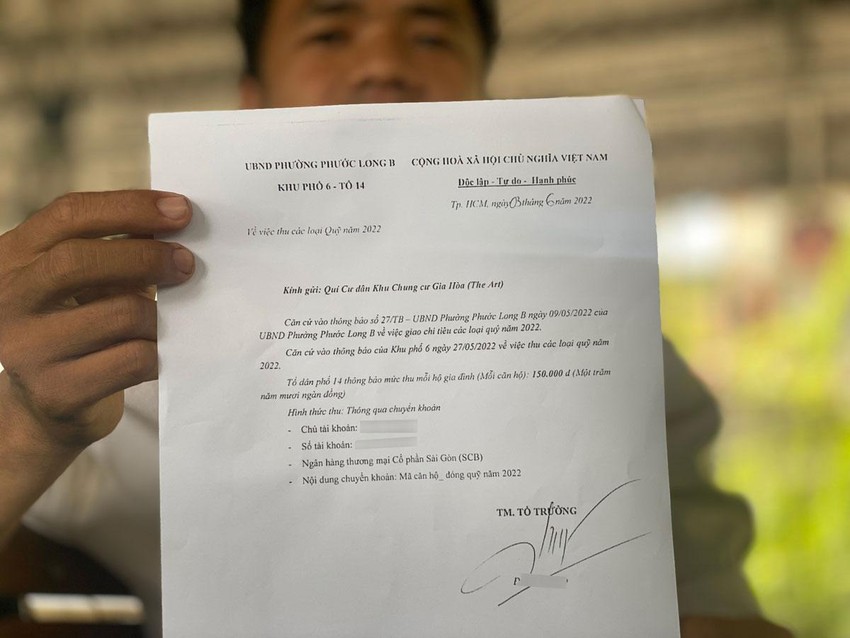 UBND PHƯỜNG PHƯỚC LONG B CỘNG HOÀ XÃ HỘI CHỦ NGHĨA VIỆT NAM
KHU PHỐ 6 - TỔ 14 Độc lập - Tự do - Hạnh phúc
Tp. HCM, ngày 03 tháng 6 năm 2022
Về việc thu các loại Quỹ năm 2022
Kính gửi: Quí Cư dân Khu Chung cư Gia Hòa (The Art)
Căn cứ vào thông báo số 27/TB – UBND Phường Phước Long B ngày 09/05/2022 của
UBND Phường Phước Long B về việc giao chỉ tiêu các loại quỹ năm 2022.
Căn cứ vào thông báo của Khu phố 6 ngày 27/05/2022 về việc thu các loại quỹ năm
2022.
Tổ dân phố 14 thông báo mức thu mỗi hộ gia đình (Mỗi căn hộ): 150.000 đ (Một trăm
năm mươi ngàn đồng)
Hình thức thu: Thông qua chuyển khoản
- Chủ tài khoản:
- Số tài khoản:
- Ngân hàng thương mại Cổ phần Sài Gòn (SCB)
- Nội dung chuyển khoản: Mã căn hộ_ đóng quỹ năm 2022
TM. TỔ TRƯỞNG